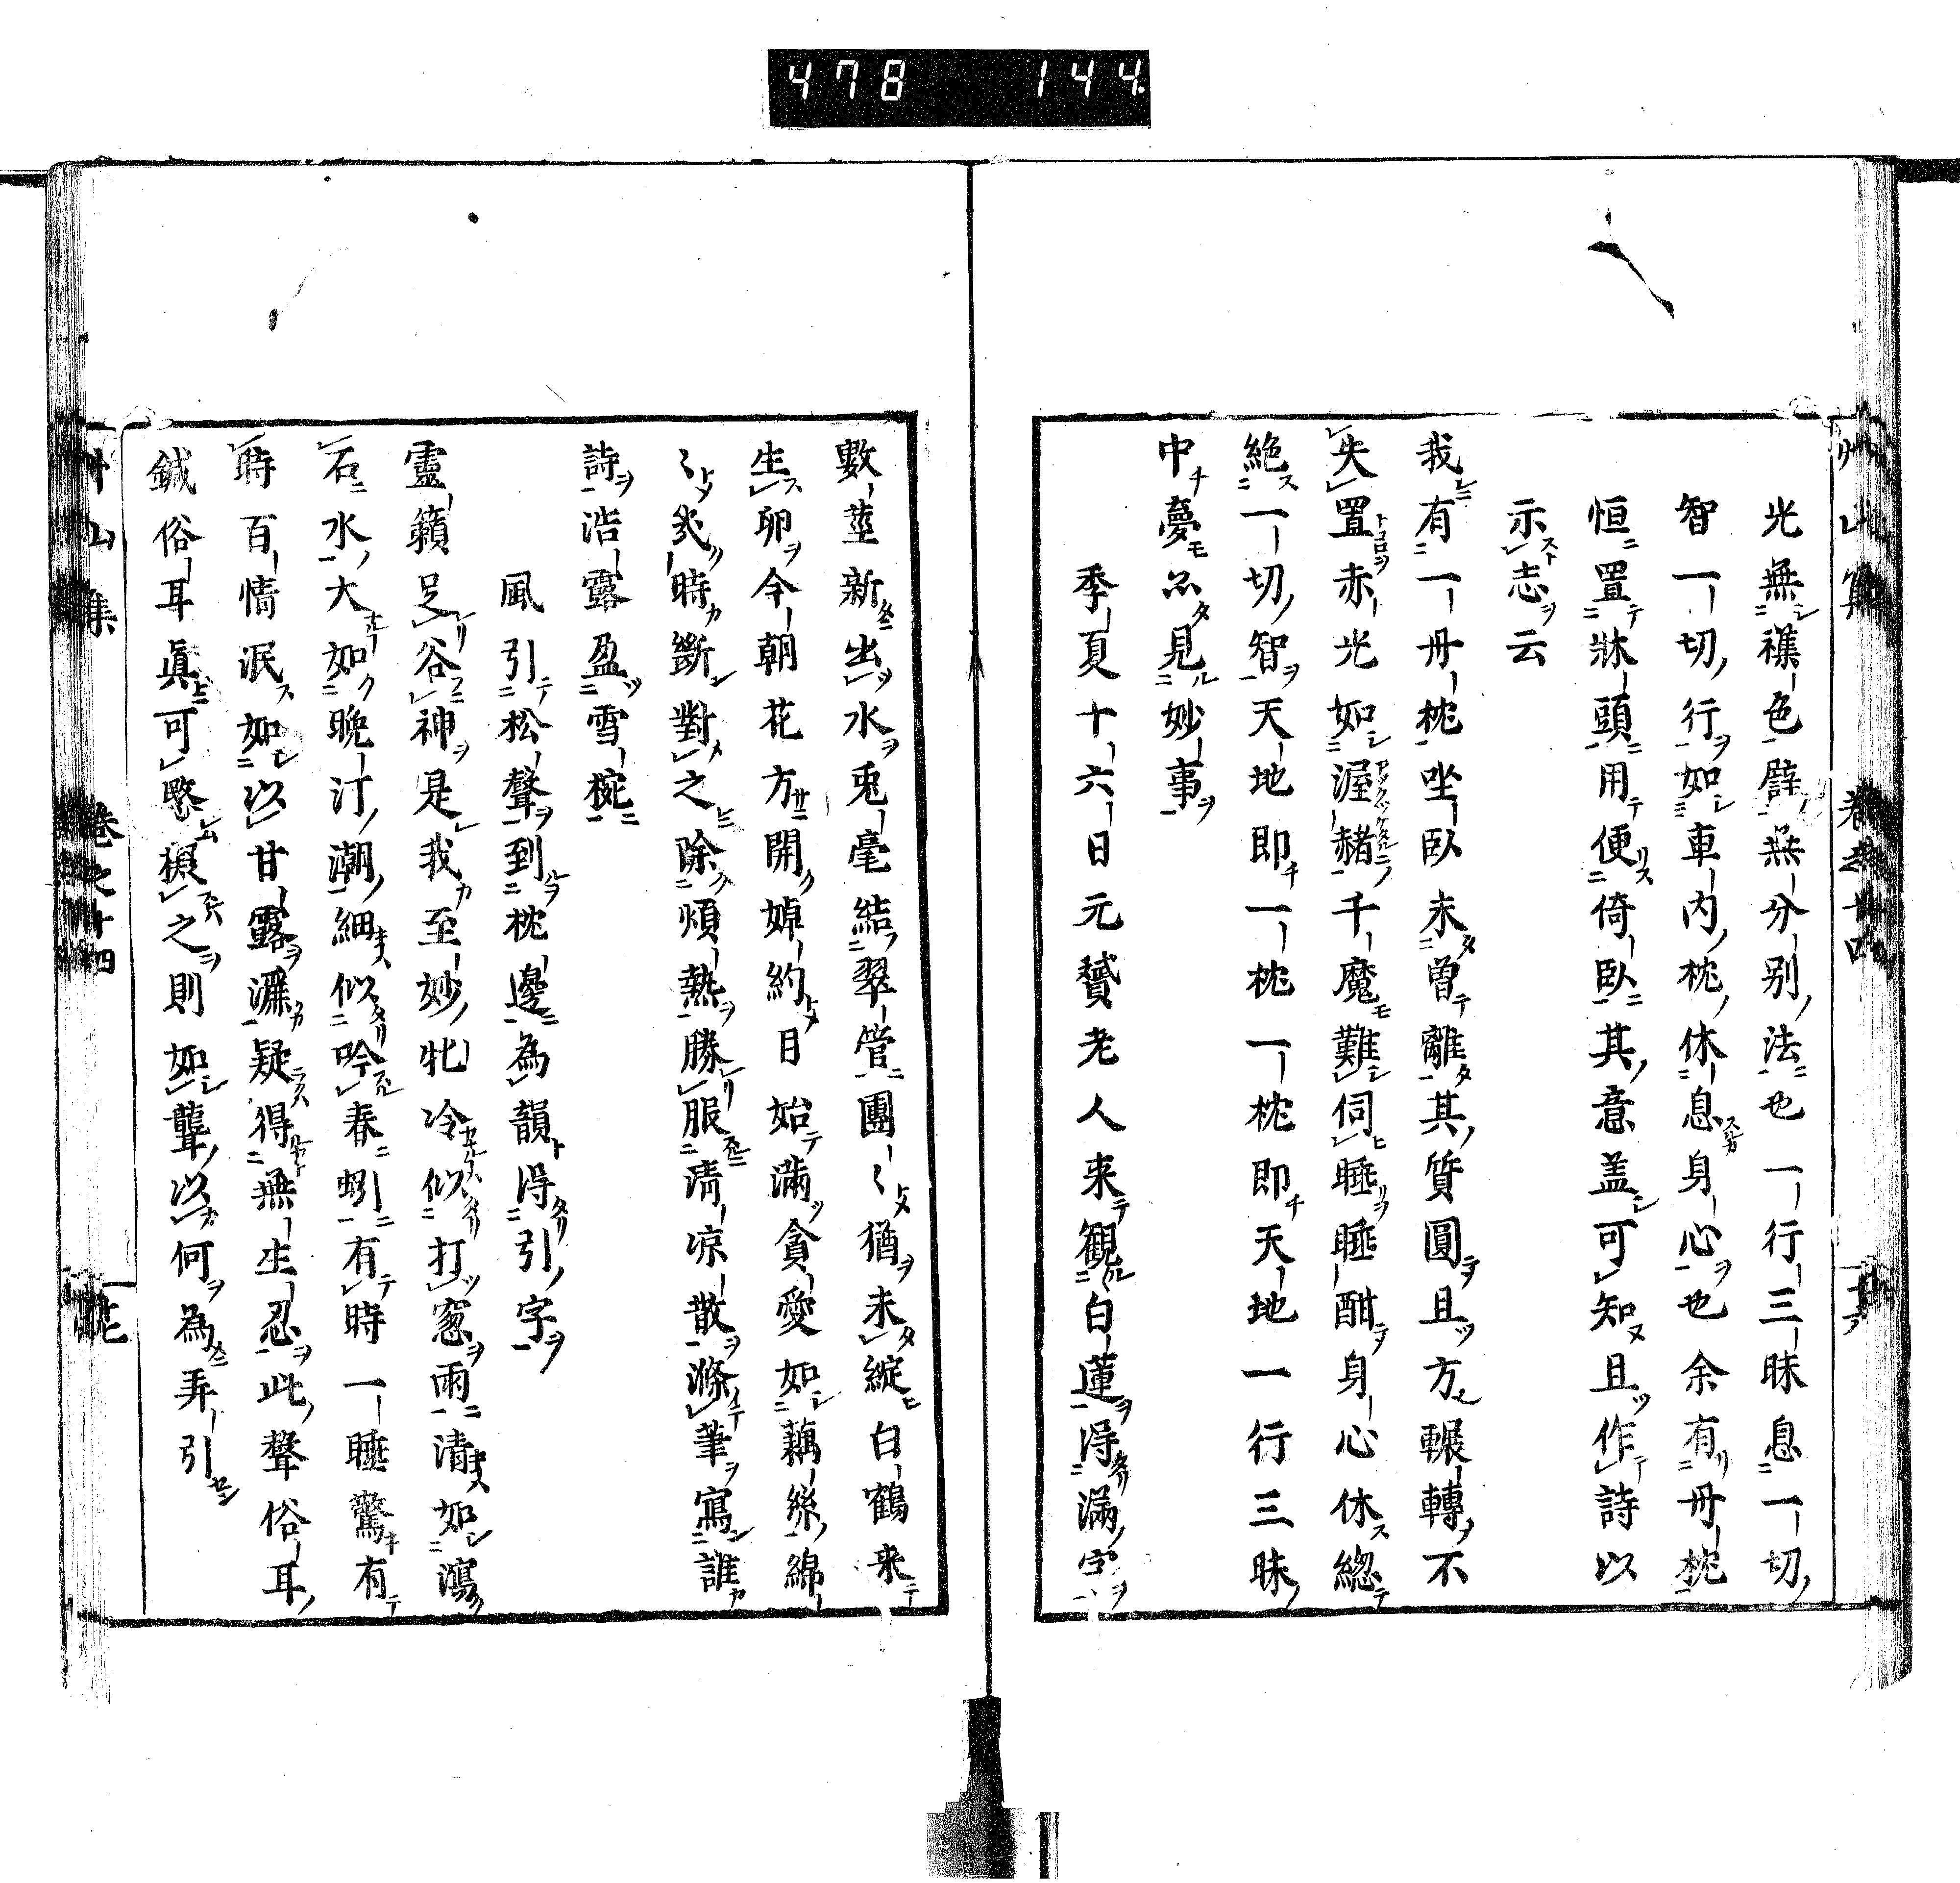 478 144
艸山集 卷之十四 廿六
光無襍色譬無分别法也一行三昧息一切
智一切行如車内枕休息身心也余有丹枕
恒置牀頭用便倚臥其意盖可知且作詩以
示志云
我有一丹枕坐臥未曾離其質圓且方輾轉不
失置赤光如渥赭千魔難伺睡睡酣身心休總
絶一切智天地即一枕一枕即天地一行三昧
中夢亦見妙事
季夏十六日元贇老人来觀白蓮得滿字
數莖新出水兎毫結翠管團〻猶未綻白鶴来
生卵今朝花方開婥約日始滿貪愛如藕絲綿
〻炎時斷對之除煩熱勝服清凉散滌筆寫誰
詩浩露盈雪椀
風引松聲到枕邊為韻得引字
靈籟足谷神是我至妙牝冷似打窓雨清如瀉
石水大如晩汀潮細似吟春蚓有時一睡驚有
時百情泯如以甘露灑疑得無生忍此聲俗耳
鍼俗耳眞可愍損之則如聾以何為弄引
艸山集 卷之十四 廿七